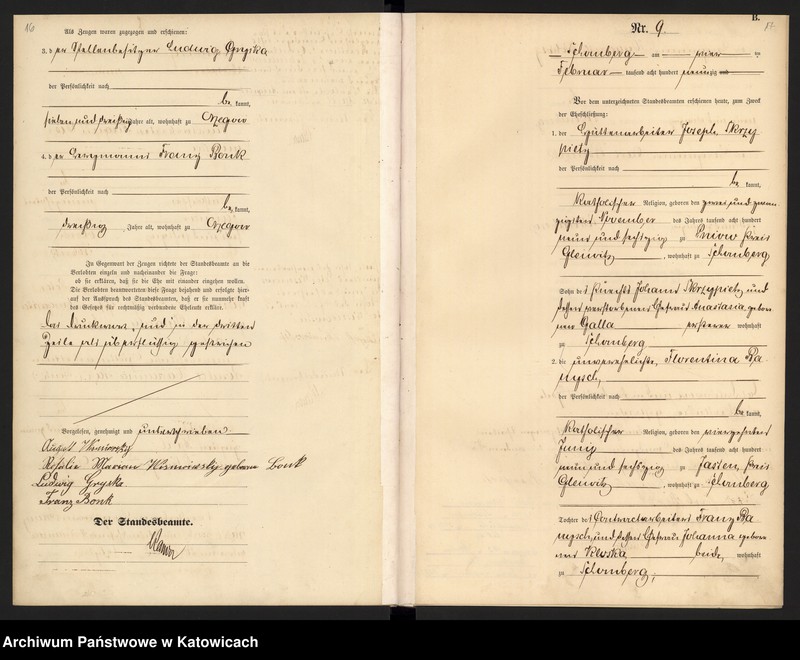 16
Als Zeugen waren zugezogen und erschienen:
3. der Stellenbesitzer Ludwig Gryska
der Persönlichkeit nach
be kannt,
sieben und dreißig Jahre alt, wohnhaft zu Orzegow
4. der Bergmann Franz Bonk
der Persönlichkeit nach
be kannt,
dreißig Jahre alt, wohnhaft zu Orzegow
In Gegenwart der Zeugen richtete der Standesbeamte an die
Verlobten einzeln und nacheinander die Frage:
ob sie erklären, daß sie die Ehe mit einander eingehen wollen.
Die Verlobten beantworteten diese Frage bejahend und erfolgte hier-
auf der Ausspruch des Standesbeamten, daß er sie nunmehr kraft
des Gesetzes für rechtmäßig verbundene Eheleute erkläre.
Das Druckwort „und“ in der dritten
Zeile als überflüssig gestrichen
Vorgelesen, genehmigt und unterschrieben
August
Rosalie geborene Bonk
Ludwig Gryska
Franz Bonk
Der Standesbeamte.
B.
17
Nr. 9.
Schomberg am vier ten
Februar tausend acht hundert neunzig
Vor dem unterzeichneten Standesbeamten erschienen heute, zum Zweck
der Eheschließung:
1. der Hüttenarbeiter Joseph Skrzy
pietz
der Persönlichkeit nach
be kannt,
katholischer Religion, geboren den zwei und zwan
zigsten November des Jahres tausend acht hundert
neun und sechszig zu Pniow Kreis
Gleiwitz, wohnhaft zu Schomberg
Sohn des Knechts Johann Skrzypietz und
dessen verstorbenen Ehefrau Anastasia gebore
nen Galla ersterer wohnhaft
zu Schomberg
2. die unverehelichte Florentina Ba
nysch,
der Persönlichkeit nach
be kannt,
katholischer Religion, geboren den vierzehnten
Juni des Jahres tausend acht hundert
neun und sechszig zu Jasten, Kreis
Gleiwitz, wohnhaft zu Schomberg
Tochter des Contractarbeiters Franz Ba
nysch und dessen Ehefrau Johanna gebore
nen Kloska beide, wohnhaft
zu Schomberg,
Archiwum Państwowe w Katowicach